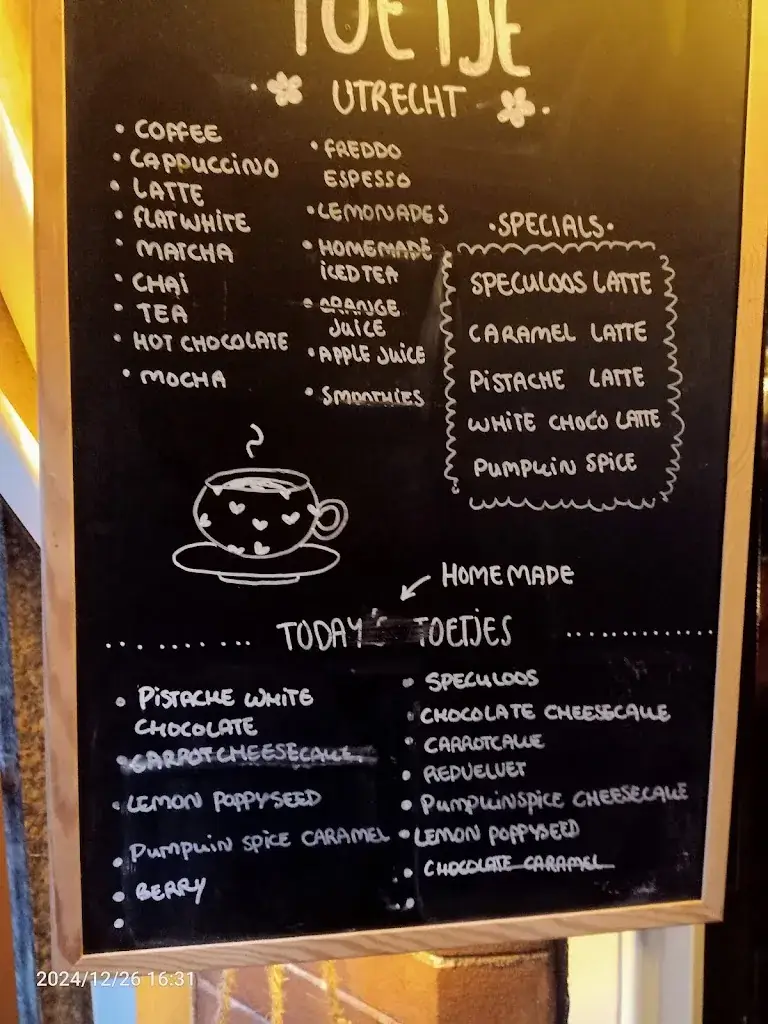 TOETJE
UTRECHT
• COFFEE
• CAPPUCCINO
• LATTE
• FLATWHITE
• MATCHA
• CHAI
• TEA
• HOT CHOCOLATE
• MOCHA
• FREDDO
ESPESSO
• LEMONADES
• HOMEMADE
ICED TEA
• ORANGE
JUICE
• APPLE JUICE
• SMOOTHIES
• SPECIALS •
SPECULOOS LATTE
CARAMEL LATTE
PISTACHE LATTE
WHITE CHOCO LATTE
PUMPKIN SPICE
HOMEMADE
TODAY'S TOETJES
• PISTACHE WHITE
CHOCOLATE
• CARROTCHEESECAKE
• LEMON POPPYSEED
• PUMPKIN SPICE CARAMEL
• BERRY
•
• SPECULOOS
• CHOCOLATE CHEESECAKE
• CARROTCAKE
• REDVELVET
• PUMPKINSPICE CHEESECAKE
• LEMON POPPYSEED
• CHOCOLATE CARAMEL
•
2024/12/26 16:31